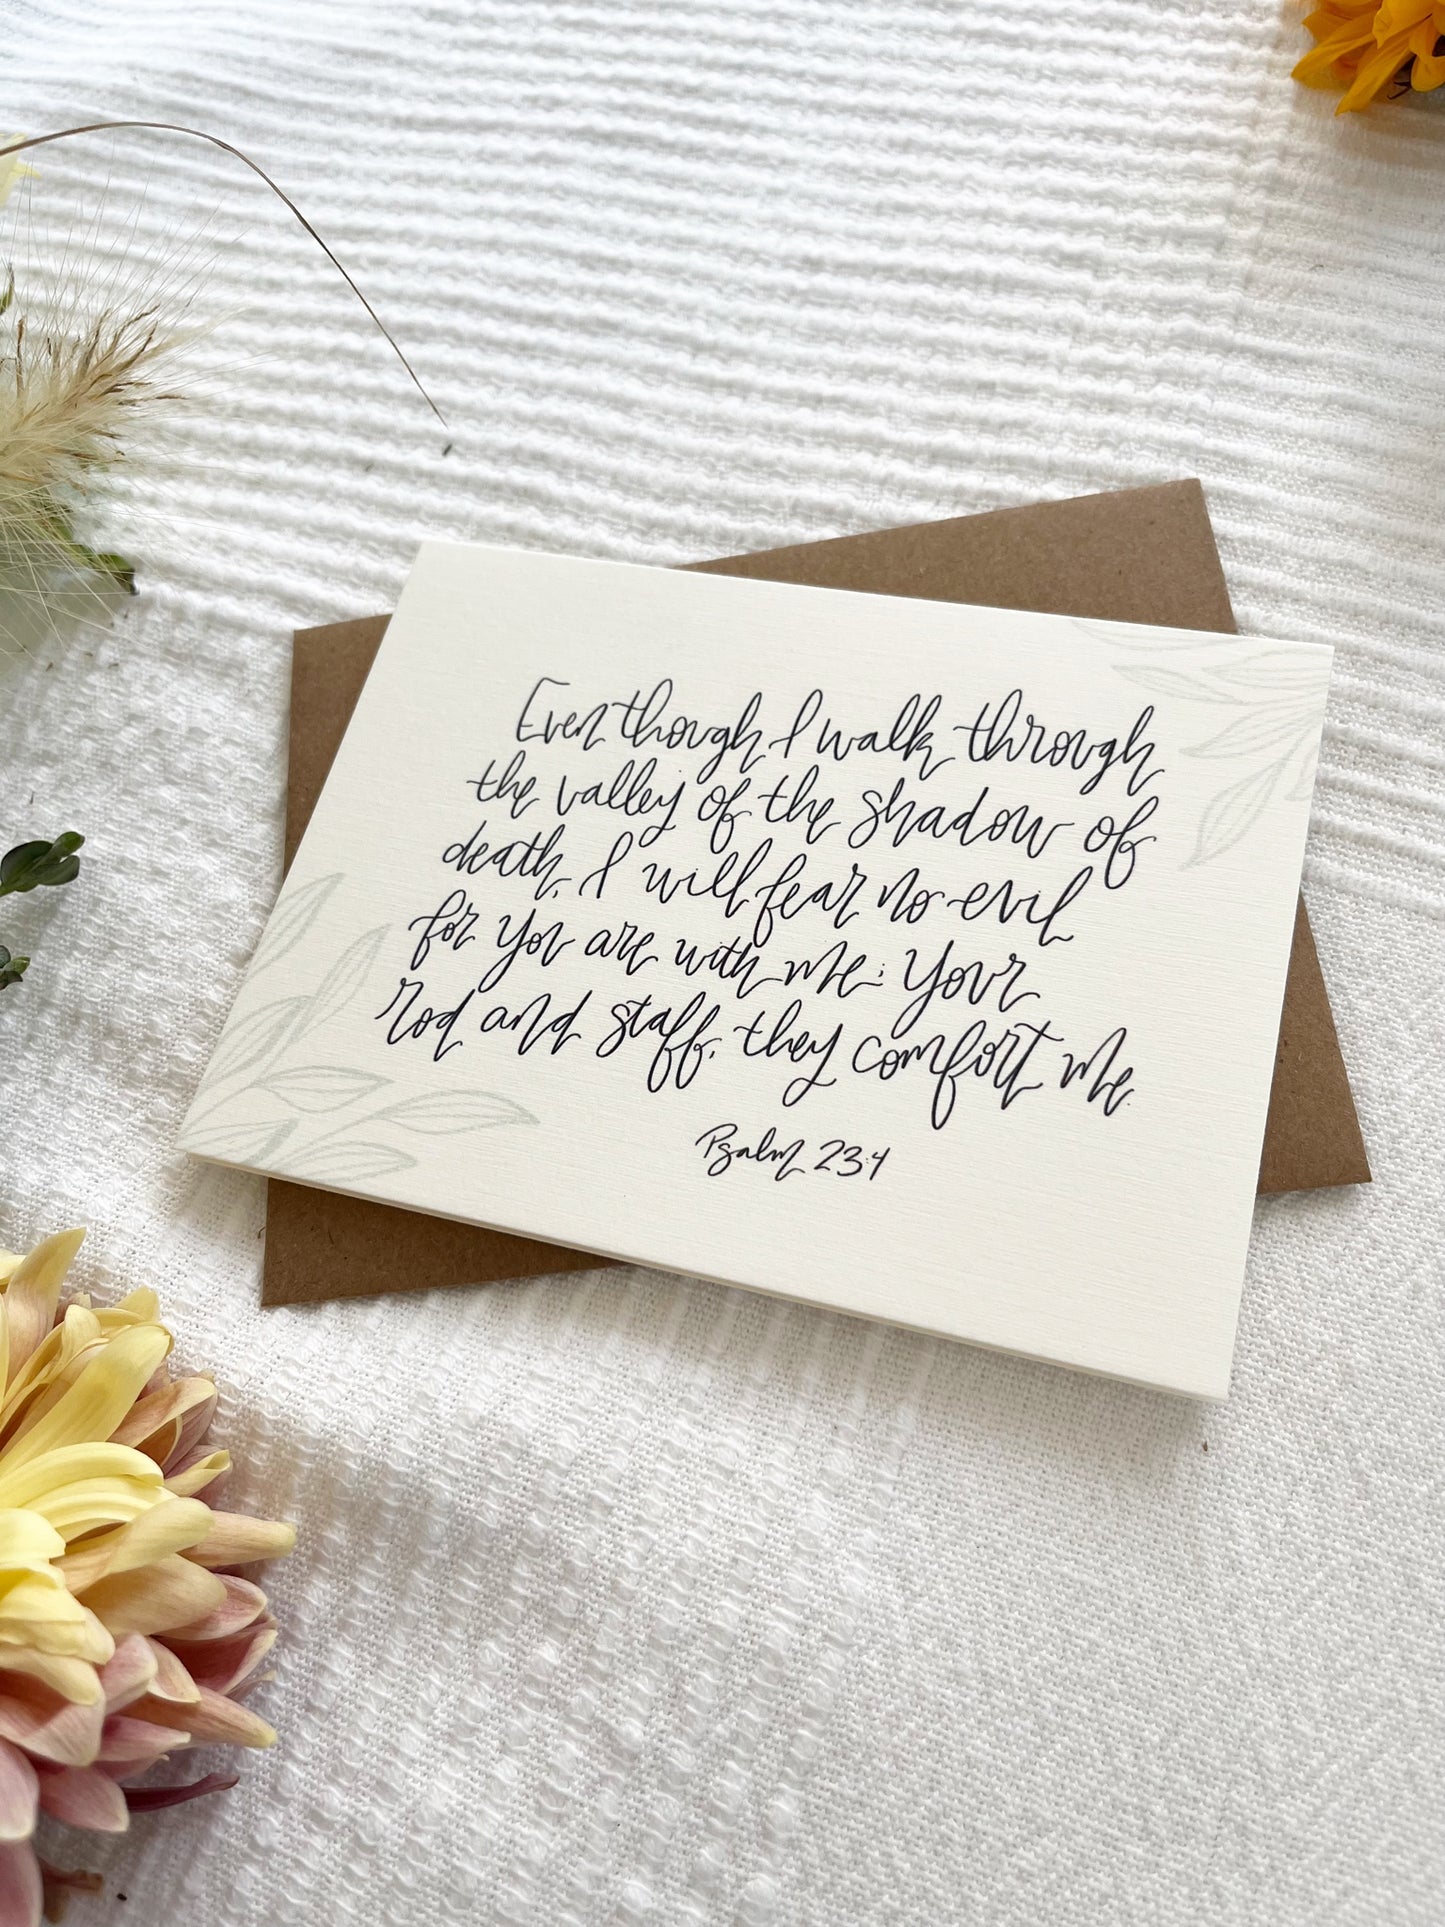 Even though I walk through
the valley of the shadow of
death, I will fear no evil
for you are with me; Your
rod and staff, they comfort me.
Psalm 23:4